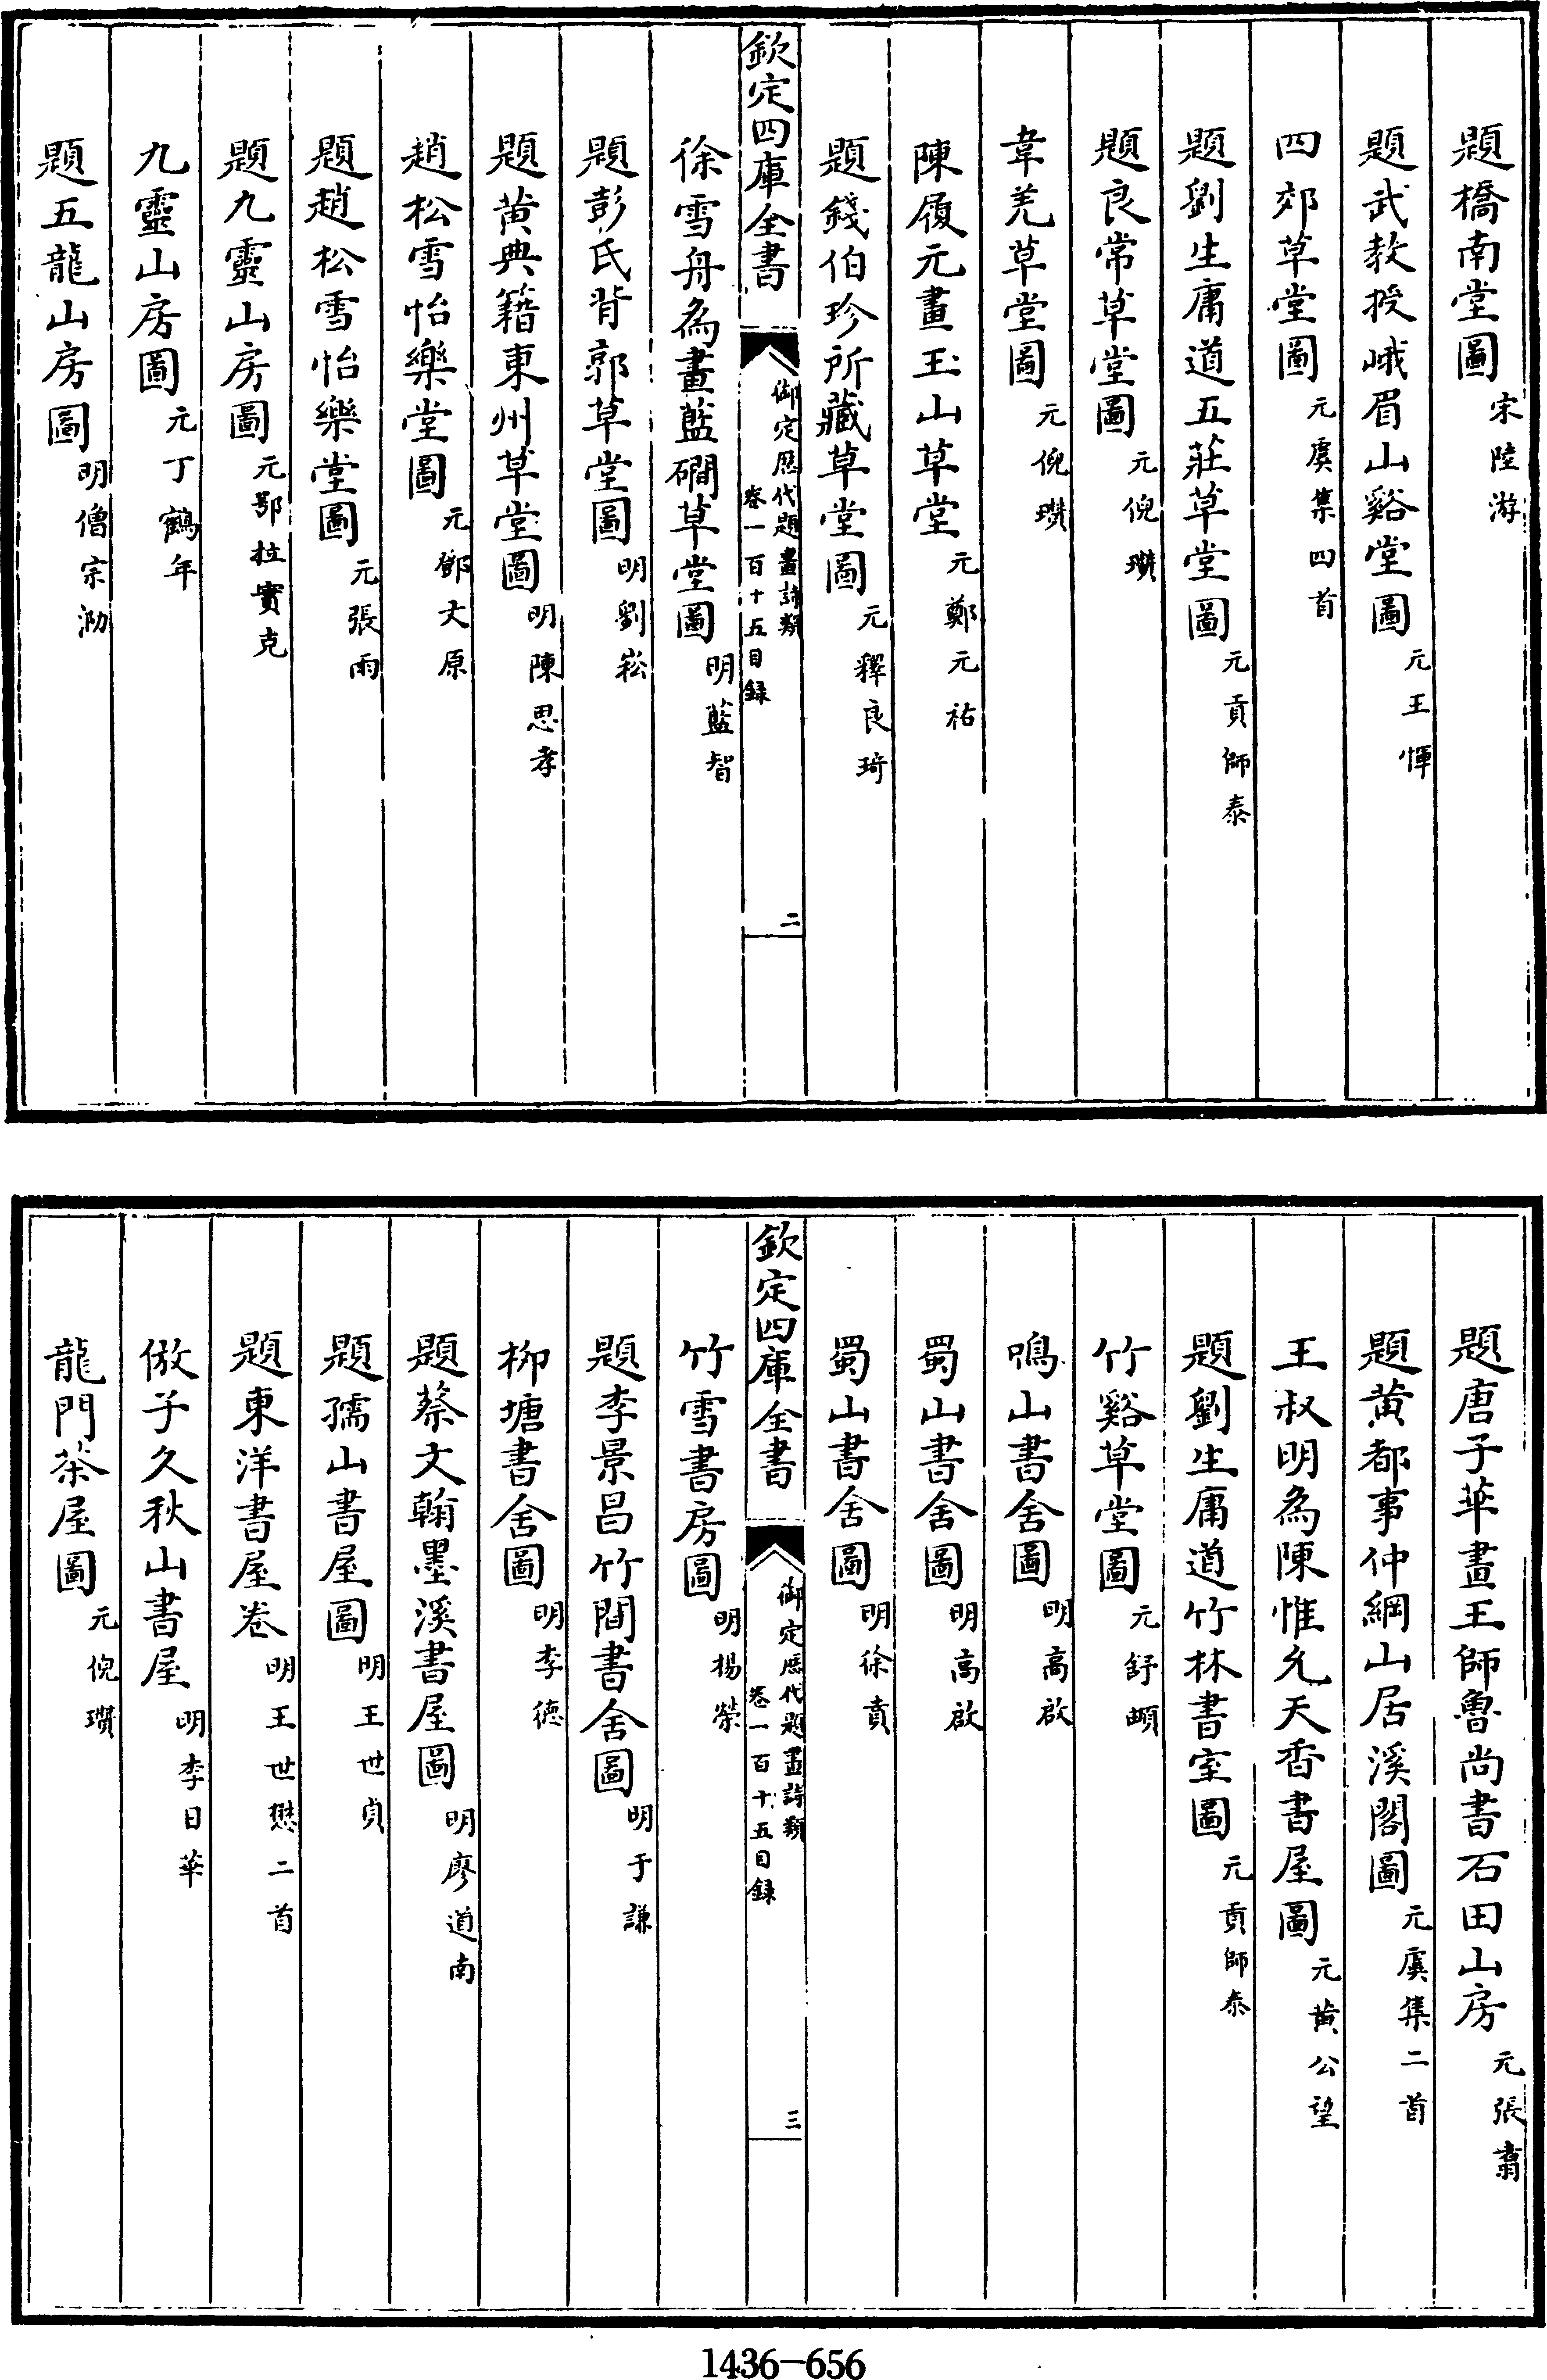 題橋南堂圖 宋陸游
題武教授峨眉山谿堂圖 元王惲
四郊草堂圖 元虞集四首
題劉生庸道五莊草堂圖 元貢師泰
題良常草堂圖 元倪瓚
韋羌草堂圖 元倪瓚
陳履元畫玉山草堂 元鄭元祐
題錢伯珍所藏草堂圖 元釋良琦
欽定四庫全書 御定歷代題畫詩類 卷一百十五目録 二
徐雪舟為畫藍磵草堂圖 明藍智
題彭氏背郭草堂圖 明劉崧
題黄典籍東州草堂圖 明陳思孝
趙松雪怡樂堂圖 元鄧文原
題趙松雪怡樂堂圖 元張雨
題九靈山房圖 元鄂拉實克
九靈山房圖 元丁鶴年
題五龍山房圖 明僧宗泐
題唐子華畫王師魯尚書石田山房 元張翥
題黄都事仲綱山居溪閣圖 元虞集二首
王叔明為陳惟允天香書屋圖 元黄公望
題劉生庸道竹林書室圖 元貢師泰
竹谿草堂圖 元舒頔
鳴山書舍圖 明高啟
蜀山書舍圖 明高啟
蜀山書舍圖 明徐賁
欽定四庫全書 御定歷代題畫詩類 卷一百十五目録 三
竹雪書房圖 明楊榮
題李景昌竹間書舍圖 明于謙
柳塘書舍圖 明李徳
題蔡文翰墨溪書屋圖 明廖道南
題孺山書屋圖 明王世貞
題東洋書屋卷 明王世懋二首
倣子久秋山書屋 明李日華
龍門茶屋圖 元倪瓚
1436-656